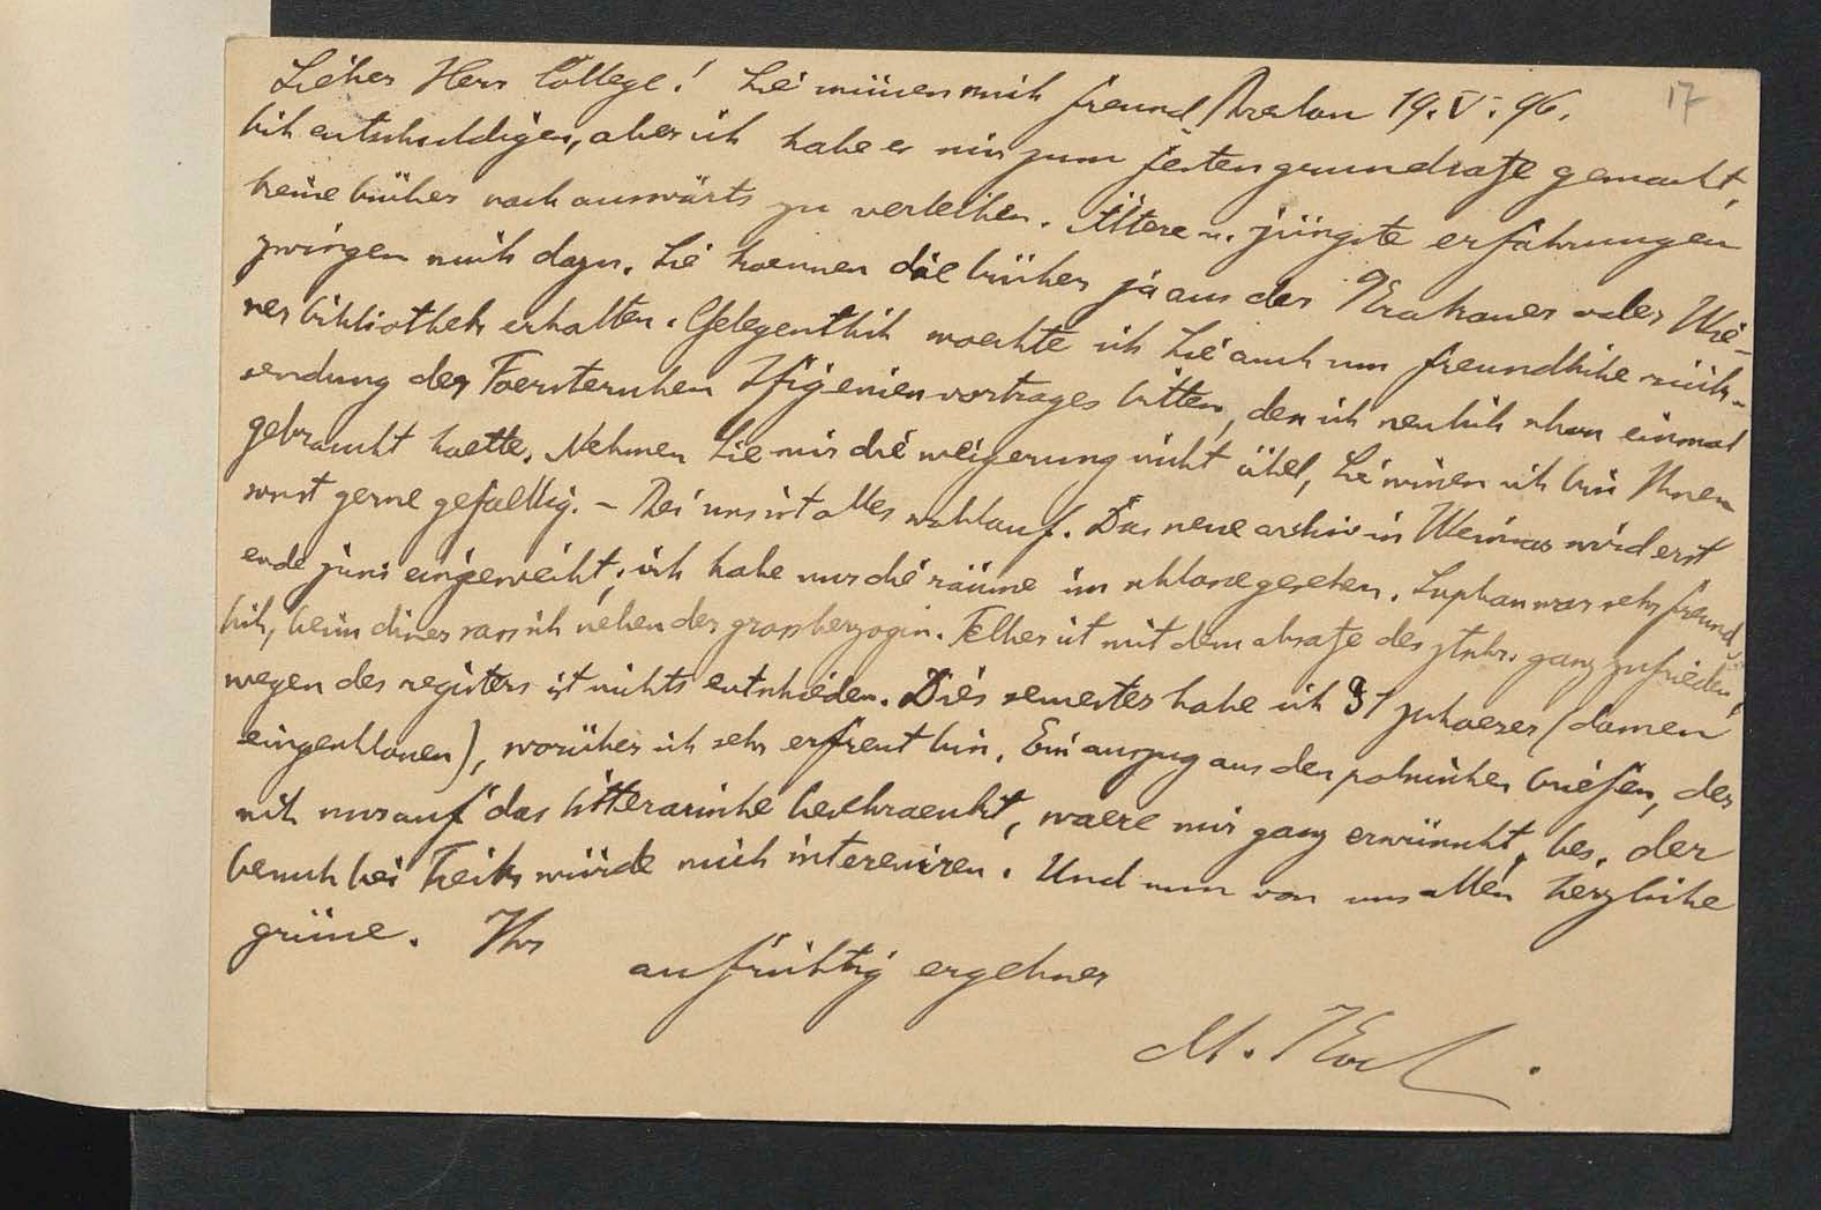 17
Lieber Herr College! Sie müssen mich freund Breslau 19. V. 96.
lich entschuldigen, aber ich habe es mir zum festen grundsatze gemacht,
keine bücher nach auswärts zu verleihen. Ältere u. jüngste erfahrungen
zwingen mich dazu. Sie koennen die bücher ja aus der Krakauer oder Wie-
ner bibliothek erhalten. Gelegentlich moechte ich Sie auch um freundliche rück-
sendung des Foersterschen Ifigenienvortrages bitten, den ich neulich schon einmal
gebraucht haette. Nehmen Sie mir die weigerung nicht übel, Sie wissen ich bin Ihnen
sonst gerne gefaellig. – Bei uns ist alles wohlauf. Das neue archiv in Weimar wird erst
ende juni eingeweiht; ich habe nur die räume im schlosse gesehen. Suphan war sehr freund
lich, beim diner sass ich neben der grossherzogin. Felber ist mit dem absatze der ztschr. ganz zufrieden,
wegen des registers ist nichts entschieden. Dies semester habe ich 31 zuhoerer (damen
eingeschlossen), worüber ich sehr erfreut bin. Ein auszug aus den polnischen briefen, der
sich nur auf das litterarische beschraenkt, waere mir ganz erwünscht, bes. der
besuch bei Tieck würde mich interessiren. Und nun von uns allen herzliche
grüsse. Ihr
aufrichtig ergebner
M. Koch.